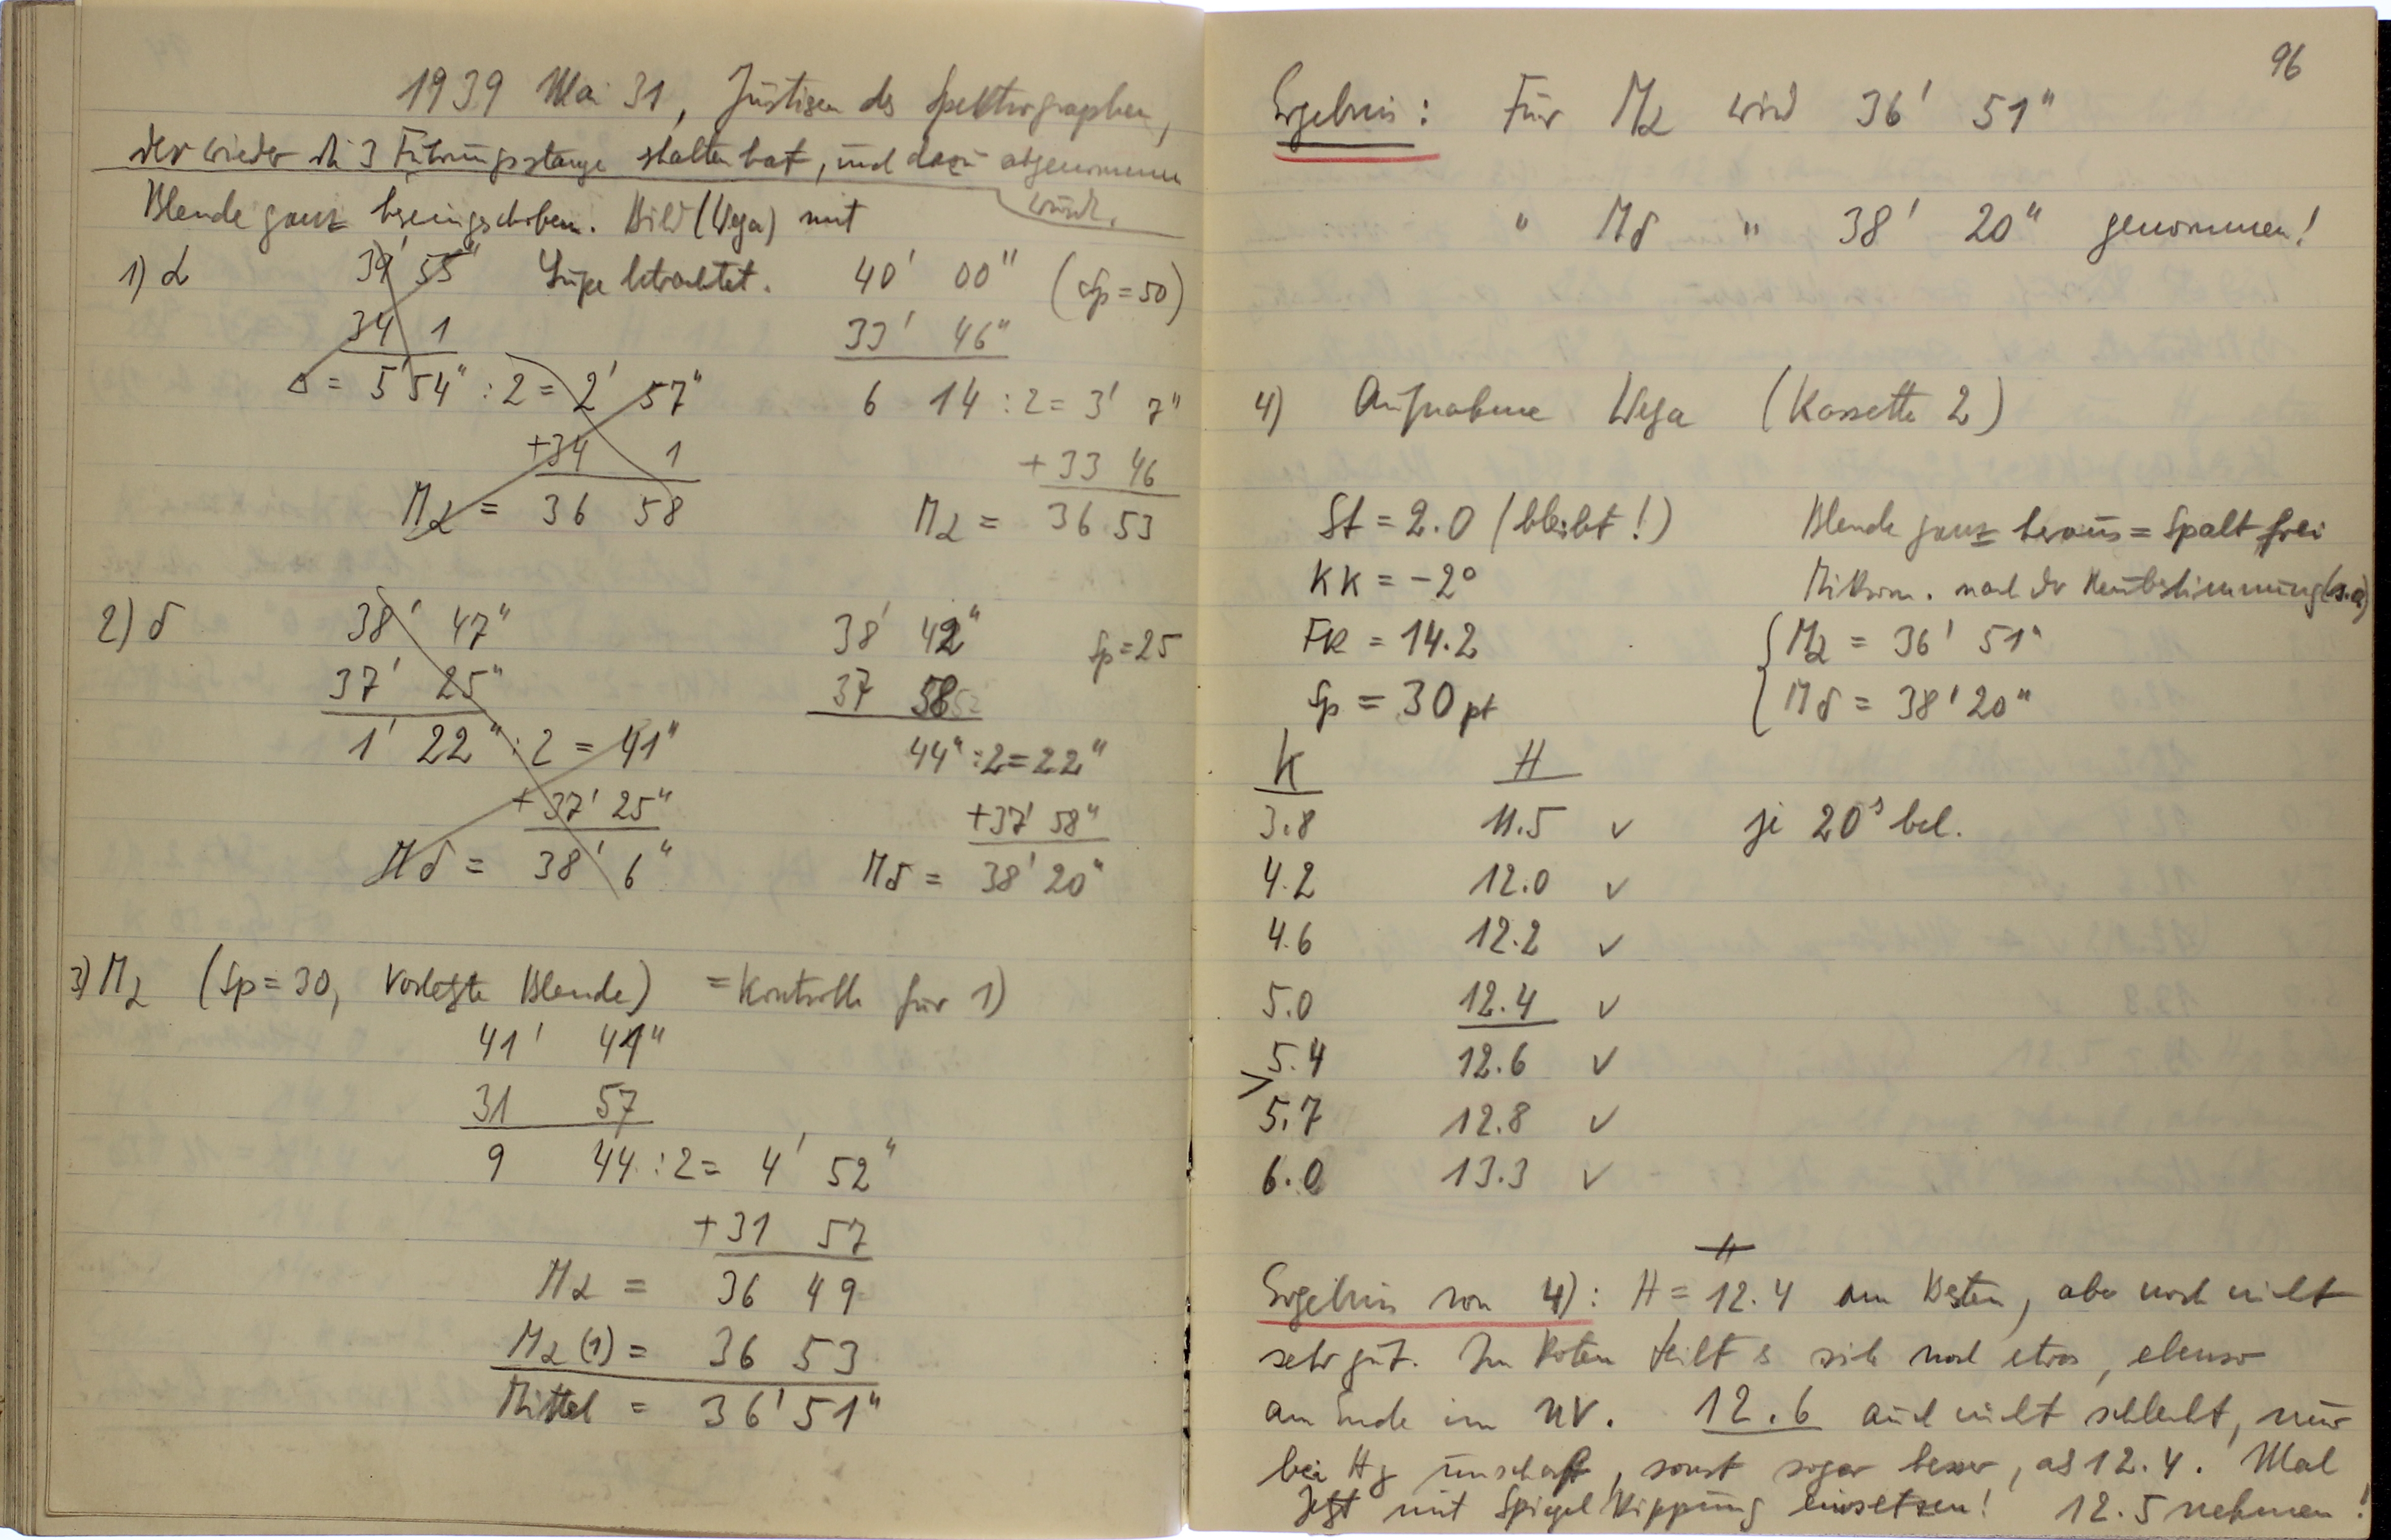 1939 Mai 31, Justieren des Spektrographen,
der wieder die 3 Führungsstange erhalten hat, und dazu abgenommen
wurde.
Blende ganz hereingeschoben. Bild (Wega) mit
Lupe betrachtet.
1) α 39' 55"
34 1
Δ = 5' 54" : 2 = 2' 57"
+34 1
Mα = 36 58
40' 00" (Sp = 50)
33' 46"
6 14 : 2 = 3' 7"
+ 33 46
Mα = 36 53
2) δ 38' 47"
37' 25"
1' 22" : 2 = 41"
+ 37' 25"
Mδ = 38' 6"
38' 42" Sp = 25
37 58
44" : 2 = 22"
+37' 58"
Mδ = 38' 20"
3) Mα (Sp = 30, vorletzte Blende) = Kontrolle für 1)
41' 41"
31 57
9 44 : 2 = 4' 52"
+31 57
Mα = 36 49
Mα (1) = 36 53
Mittel = 36' 51"
96
Ergebnis: Für Mα wird 36' 51"
" Mδ " 38' 20" genommen!
4) Aufnahme Wega (Kassette 2)
St = 2.0 (bleibt!) Blende ganz heraus = Spalt frei
KK = -2° Mikrom. nach der Neubestimmung (s.o)
FK = 14.2 Mα = 36' 51"
Sp = 30 pt Mδ = 38' 20"
K H
3.8 11.5 ✓ je 20ˢ bel.
4.2 12.0 ✓
4.6 12.2 ✓
5.0 12.4 ✓
5.4 12.6 ✓
> 5.7 12.8 ✓
6.0 13.3 ✓
Ergebnis von 4): H = 12.4 am Besten, aber noch nicht
sehr gut. Im Roten teilt es sich noch etwas, ebenso
am Ende im UV. 12.6 auch nicht schlecht, nur
bei Hγ unscharf, sonst sogar besser, als 12.4. Mal
12.5 nehmen!
Jetzt mit Spiegel Kippung einsetzen!